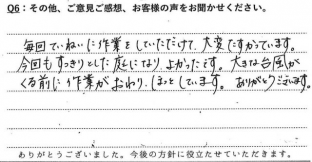 Q6：その他、ご意見ご感想、お客様の声をお聞かせください。
毎回ていねいに作業をしていただけて、大変たすかっています。
今回もすっきりとした庭になりよかったです。大きな台風が
くる前に作業がおわり、ほっとしています。ありがとうございます。
ありがとうございました。今後の方針に役立たせていただきます。